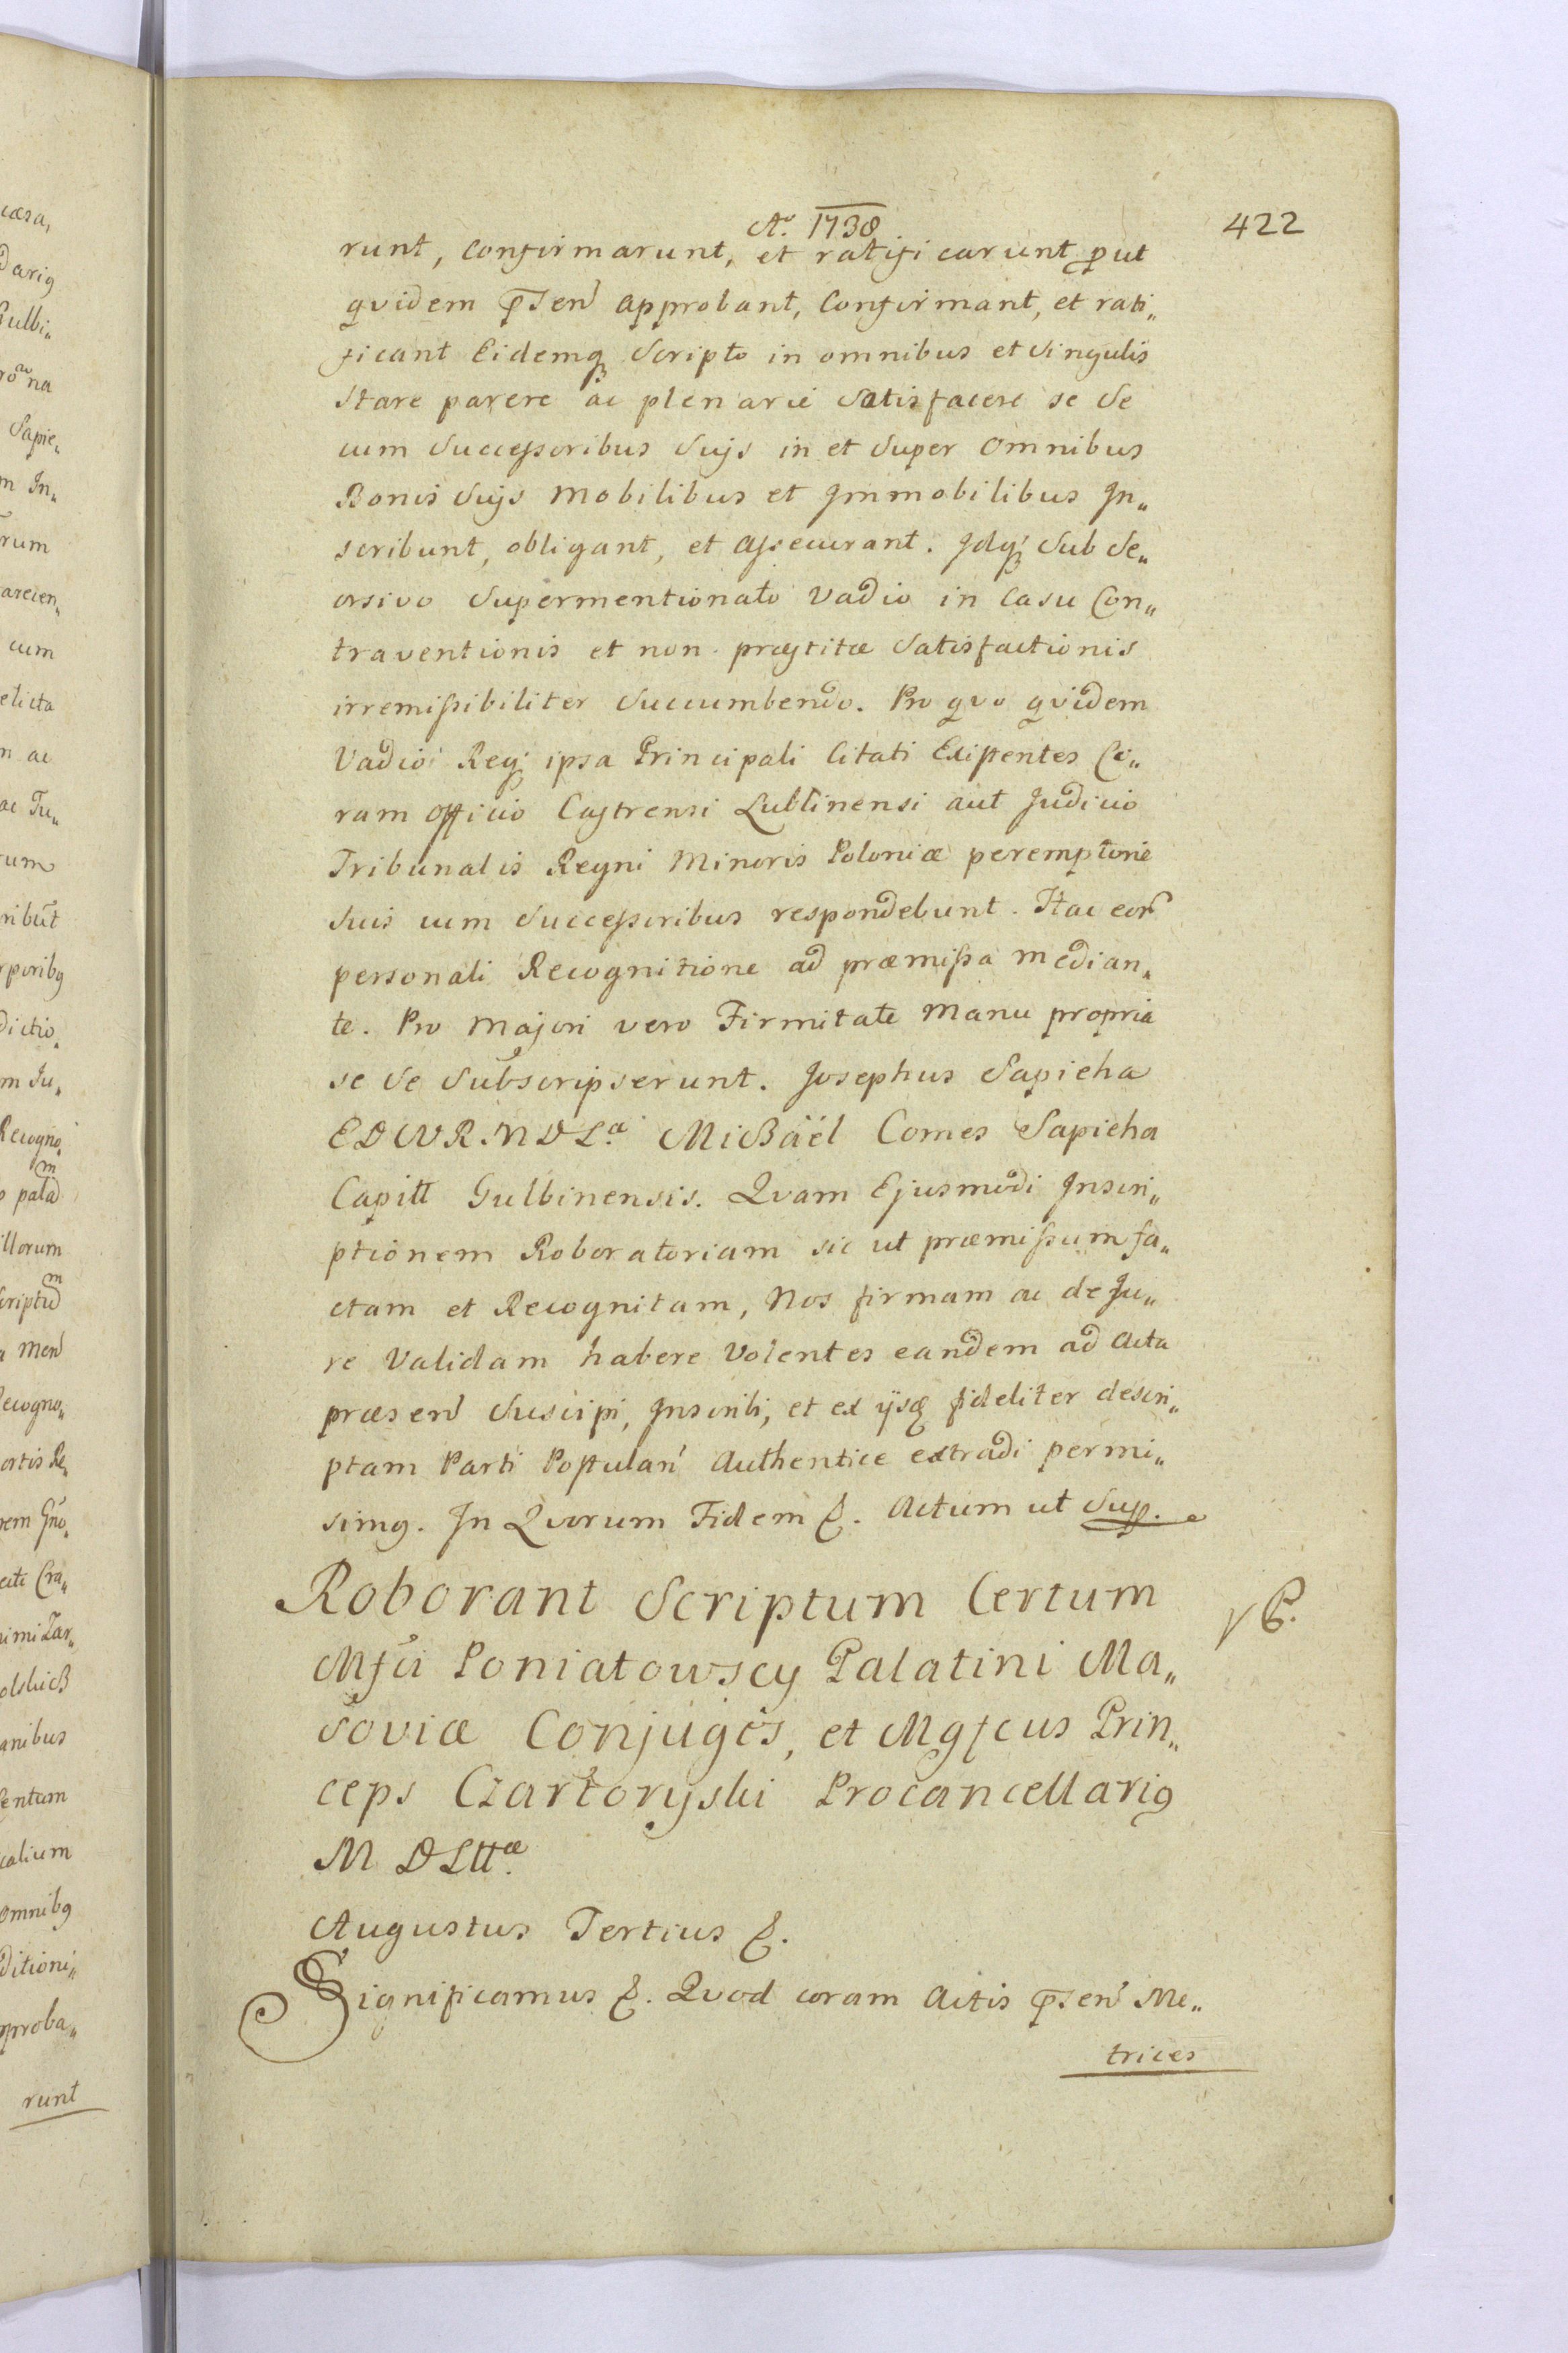 Aº. 1738
422
runt, Confirmarunt, et ratificarunt ꝓut
qvidem p̄sen Approbant, Confirmant, et rati„
ficant Eidemq₃ Scripto in omnibus et Singulis
Stare parere ac plenarie Satisfacere se se
cum Successoribus Suijs in et Super Omnibus
Bonis Suijs Mobilibus et Immobilibus In„
scribunt, obligant, et Assecurant. Idq₃ Sub Se„
orsivo Supermentionato Vadio in Casu Con„
traventionis et non præstitæ Satisfactionis
irremissibiliter Succumbendo. Pro qvo qvidem
Vadio Req₃ ipsa Principali Citati Existentes Co„
ram Officio Castrensi Lublinensi aut Judicio
Tribunalis Regni Minoris Poloniæ peremptorie
Suis cum Successoribus respondebunt. Hac eor
personali Recognitione ad præmissa median„
te. Pro Majori vero Firmitate Manu propria
se se Subscripserunt. Josephus Sapieha
E D C W R. M D Lª Michaël Comes Sapieha
Capitt Gulbinensis. Qvam Ejusmodi Inscri„
ptionem Roboratoriam sic ut præmissum fa„
ctam et Recognitam, Nos firmam ac de Ju„
re Validam habere Volentes eandem ad Acta
præsen Suscipi, Inscribi, et ex ijsdē fideliter descri„
ptam Parti Postulan Authentice extradi permi„
simꝰ. In Qvorum Fidem &. Actum ut Sup.
Roborant Scriptum Certum
Mfci Poniatowscy Palatini Ma„
soviæ Conjuges, et Mgfcus Prin„
ceps Czartoryski Procancellariꝰ
M D Littæ.
Augustus Tertius &.
Significamus &. Qvod coram Actis p̄sen Me„
trices